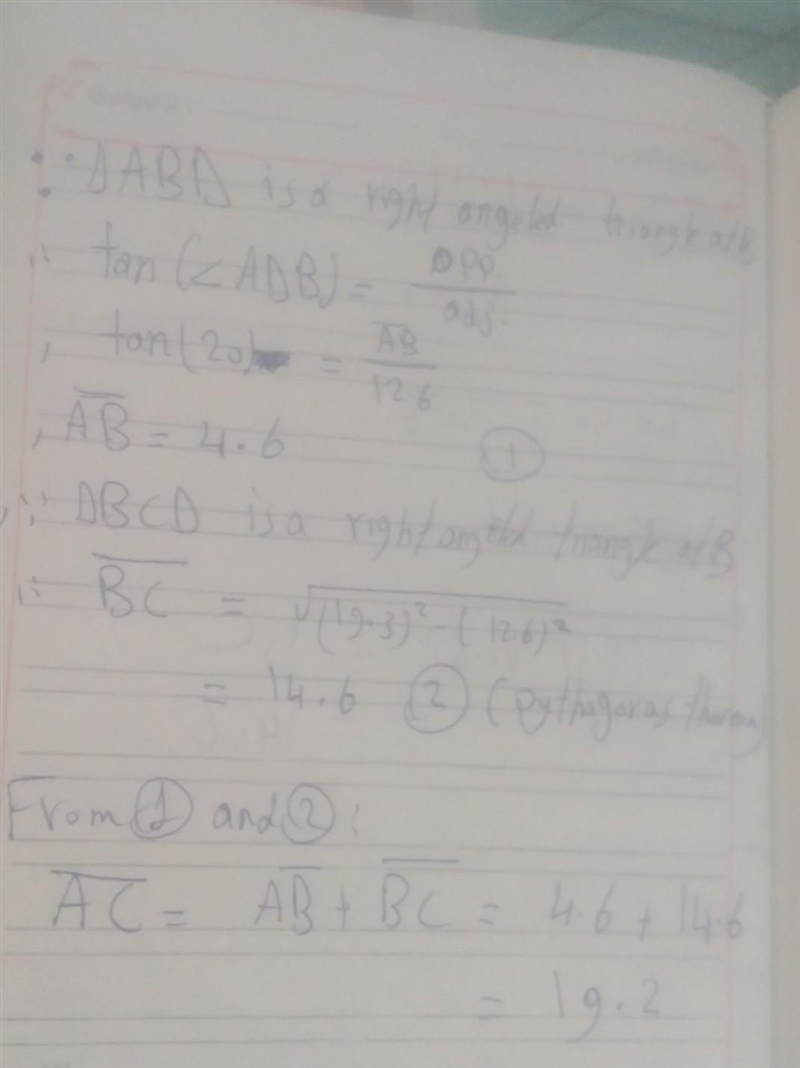 ∵ ΔABD is a right angeled triangle at B
∴ tan(<ADB) = opp / adj.
, tan(20) = AB / 12.6
, A̅B̅ = 4.6 ①
, ∵ ΔBCD is a right angeled triangle at B
∴ B̅C̅ = √(19.3)² - (12.6)²
= 14.6 ② (pythagoras
From ① and ② :
A̅C̅ = A̅B̅ + B̅C̅ = 4.6 + 14.6
= 19.2